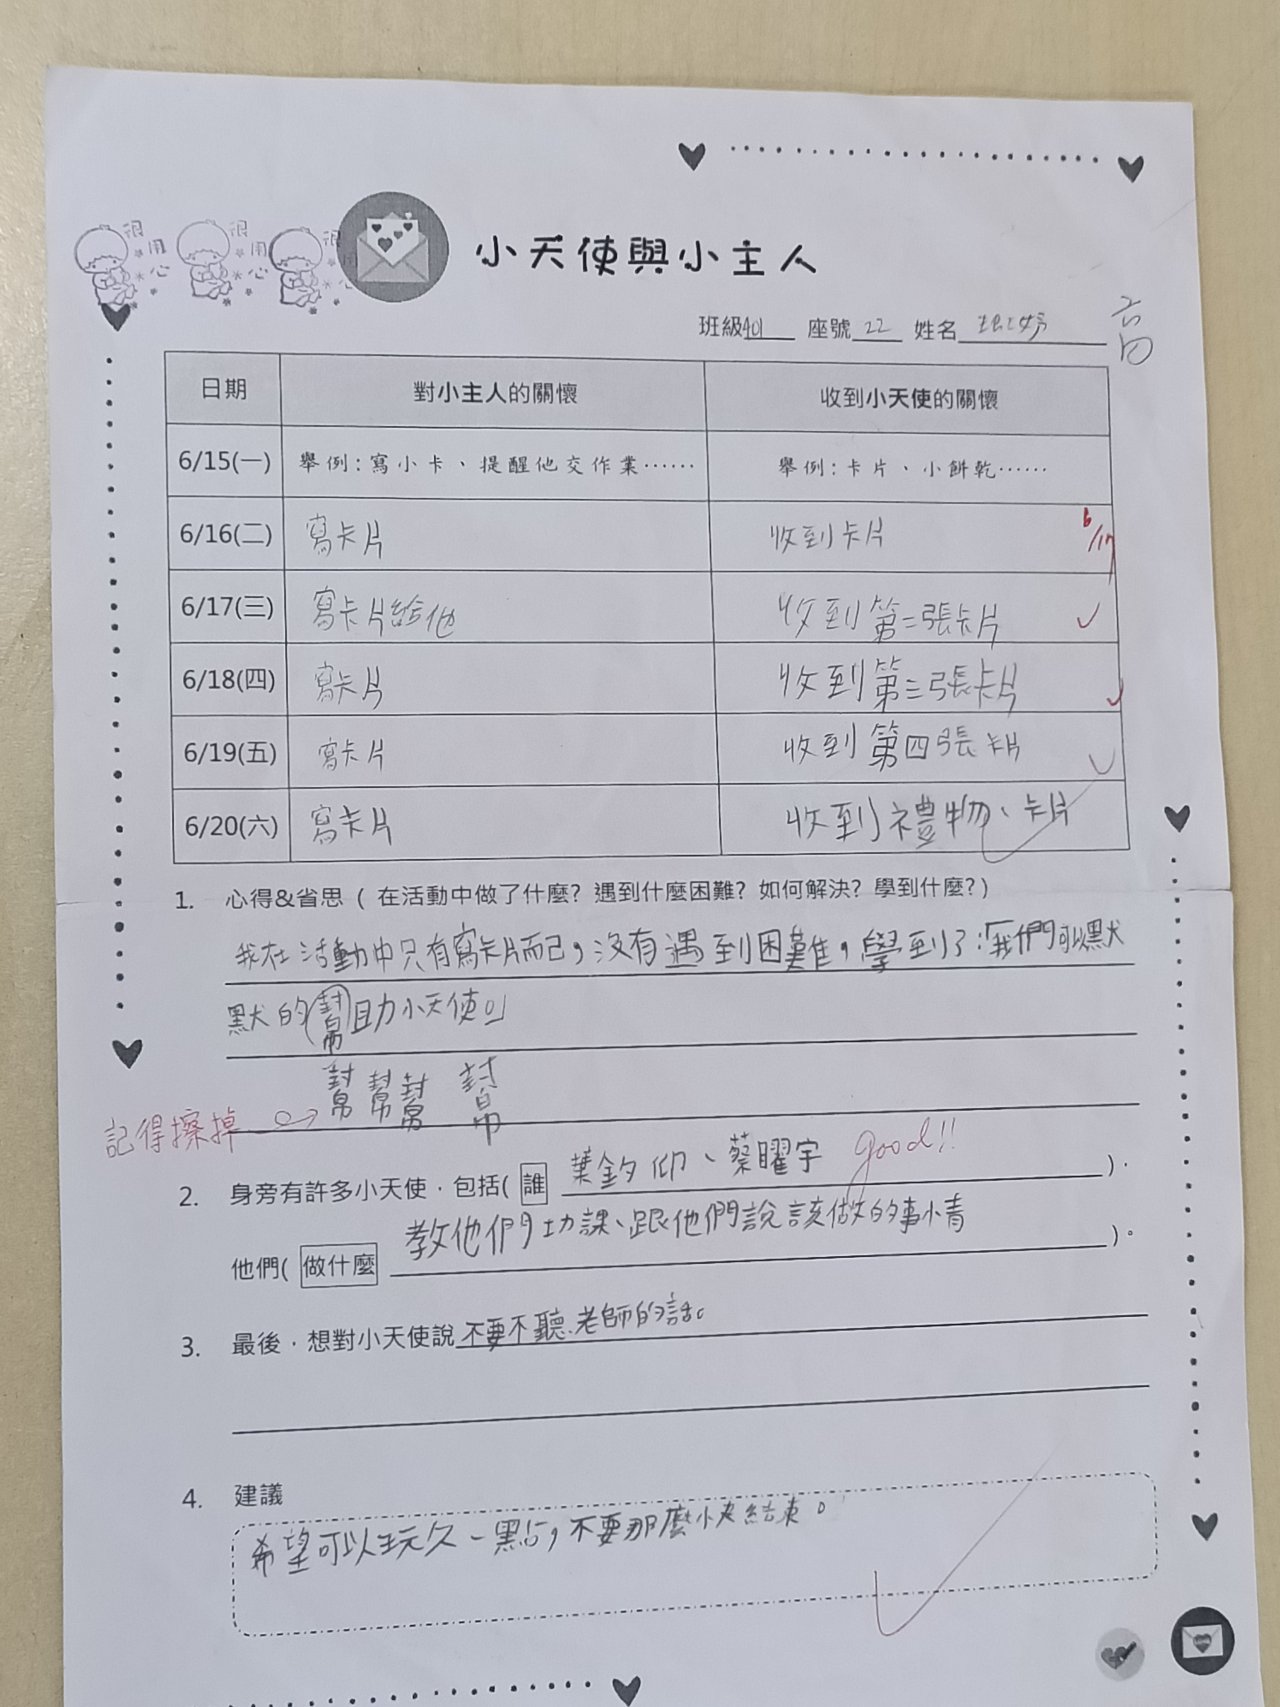 很用心 很用心 很用心
小天使與小主人
班級401 座號22 姓名
高
日期 對小主人的關懷 收到小天使的關懷
6/15(一) 舉例:寫小卡、提醒他交作業⋯⋯ 舉例:卡片、小餅乾⋯⋯
6/16(二) 寫卡片 收到卡片 6/17
6/17(三) 寫卡片給他 收到第二張卡片
6/18(四) 寫卡片 收到第三張卡片
6/19(五) 寫卡片 收到第四張卡片
6/20(六) 寫卡片 收到禮物、卡片
1. 心得&省思 ( 在活動中做了什麼? 遇到什麼困難? 如何解決? 學到什麼?)
我在活動中只有寫卡片而已,沒有遇到困難,學到了:「我們可以默
默的幫助小天使。」
幫幫幫 幫
記得擦掉
2. 身旁有許多小天使,包括( 誰 葉鈞仰、蔡曜宇 good!! ),
他們( 做什麼 教他們功課、跟他們說該做的事小青 )。
3. 最後,想對小天使說 不要不聽老師的話。
4. 建議
希望可以玩久一點,不要那麼小夾結束。